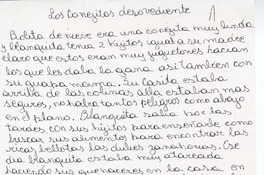 Los Conejitos desovediente
Bolita de nieve era una conejita muy linda
y blanquita tenia 2 hijitos igual a su madre
claro que estos eran muy juguetones hacian
los que les daba la gana asi tambien con
su guapa mama. Su casita estaba
arriba de las colinas alla estaban mas
seguros, no habia tantos peligros como abajo
en el plano. Blanquita salia por las
tardes con sus hijitos para enseñarle como
buscar sus alimentos para encontrar las
ricas bellotas las dulces zanahorias. Ese
dia blanquita estaba muy atareada
haciendo sus quehaceres en la casa en